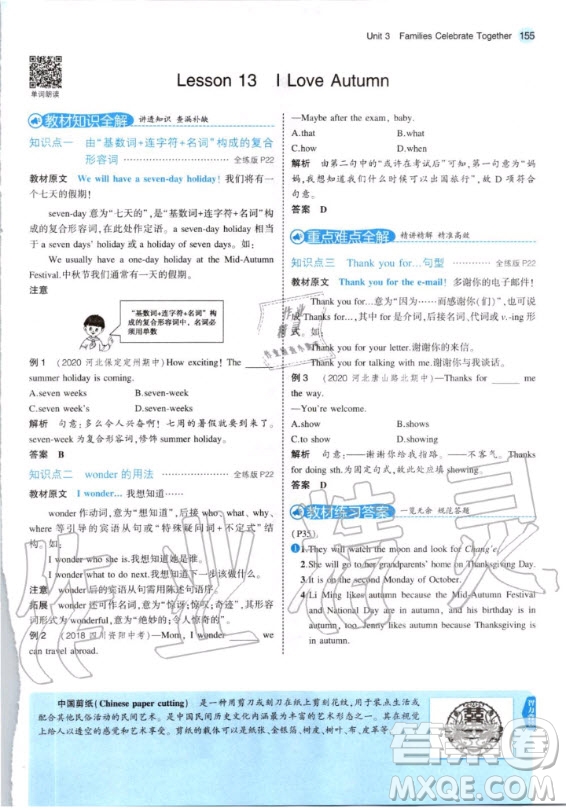 Unit 3 Families Celebrate Together 155
单词朗读
Lesson 13 I Love Autumn
教材知识全解 讲透知识 查漏补缺
知识点一 由“基数词+连字符+名词”构成的复合
形容词 全练版P22
教材原文 We will have a seven-day holiday! 我们将有一
个七天的假期!
seven-day 意为“七天的”,是“基数词+连字符+名词”构
成的复合形容词,在此处作定语。a seven-day holiday 相当
于 a seven days' holiday 或 a holiday of seven days。如:
We usually have a seven-day holiday at the Mid-Autumn
Festival.中秋节我们通常有一个七天的假期。
注意
“基数词+连字符+名词”构
成的复合形容词中,名词必
须用单数
例1 (2020 河北保定定州期中)How exciting! The ____
summer holiday is coming.
A.seven weeks B.seven-week
C.seven-weeks D.seven week
解析 句意:多么令人兴奋啊!七周的暑假就要来到了。
seven-week 为复合形容词,修饰 summer holiday。
答案 B
知识点二 wonder 的用法 全练版P22
教材原文 I wonder... 我想知道……
wonder 作动词,意为“想知道”,后接 who、what、why、
where 等引导的宾语从句或“特殊疑问词+不定式”结
构。如:
I wonder who she is.我想知道她是谁。
I wonder what to do next.我想知道下一步该做什么。
注意 wonder 后的宾语从句需用陈述句语序。
拓展 wonder 还可作名词,意为“惊讶;惊叹;奇迹”,其形容
词形式为 wonderful,意为“绝妙的;令人惊奇的”。
例2 (2018 四川资阳中考)—Mom, I wonder ____ we
can travel abroad.
—Maybe after the exam, baby.
A.that B.what
C.how D.when
解析 由第二句中的“或许在考试后”可知,第一句意为“妈
妈,我想知道我们什么时候可以出国旅行”,故 D 项符合
句意。
答案 D
重点难点全解 精讲精解 精准高效
知识点三 Thank you for...句型 全练版P22
教材原文 Thank you for the e-mail! 多谢你的电子邮件!
Thank you for...意为“因为……而感谢你(们)”,也可说
成 Thanks for...,其中的 for 是介词,后接名词、代词或 v.-ing 形
式。如:
Thank you for your letter.谢谢你的来信。
Thank you for talking with me.谢谢你与我谈话。
例3 (2020 河北唐山路北期中)—Thanks for ____ me
the way.
—You're welcome.
A.show B.shows
C.to show D.showing
解析 句意:——谢谢你给我指路。——不客气。Thanks
for doing sth.为固定句式,故此处应填 showing。
答案 D
教材练习答案 一览无余 规范答题
(P35)
1 1.They will watch the moon and look for Chang'e.
2.She will go to her grandparents' home on Thanksgiving Day.
3.It is on the second Monday of October.
4.Li Ming likes autumn because the Mid-Autumn Festival
and National Day are in autumn, and his birthday is in
autumn, too. Jenny likes autumn because Thanksgiving is
in autumn.
中国剪纸(Chinese paper cutting) 是一种用剪刀或刻刀在纸上剪刻花纹,用于装点生活或
配合其他民俗活动的民间艺术。是中国民间历史文化内涵最为丰富的艺术形态之一。在视觉
上给人以透空的感觉和艺术享受。剪纸的载体可以是纸张、金银箔、树皮、树叶、布、皮、革等。
作业精灵
答案圈
MXQE.COM